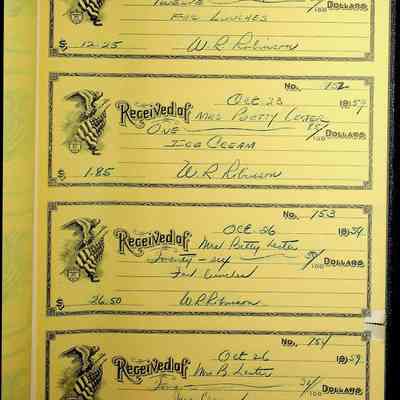 Twelve 100 DOLLARS
For Lunches
$ 12.25 W R Robinson
No. 152
Oct 23 1959
Received of Mrs Betty Lester
One 85/100 DOLLARS
Ice Cream
$ 1.85 W R Robinson
No. 153
Oct 26 1959
Received of Mrs Betty Lester
Twenty-six 50/100 DOLLARS
For Lunches
$ 26.50 W R Robinson
No. 154
Oct 26 1959
Received of Mrs B Lester
100 DOLLARS